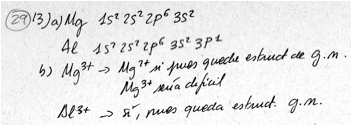 (29) 13) a) Mg 1s² 2s² 2p⁶ 3s²
Al 1s² 2s² 2p⁶ 3s² 3p¹
b) Mg³⁺ → Mg²⁺ si pues quede estruct de g.n.
Mg³⁺ sería difícil
Al³⁺ → sí, pues queda estruct. g.n.